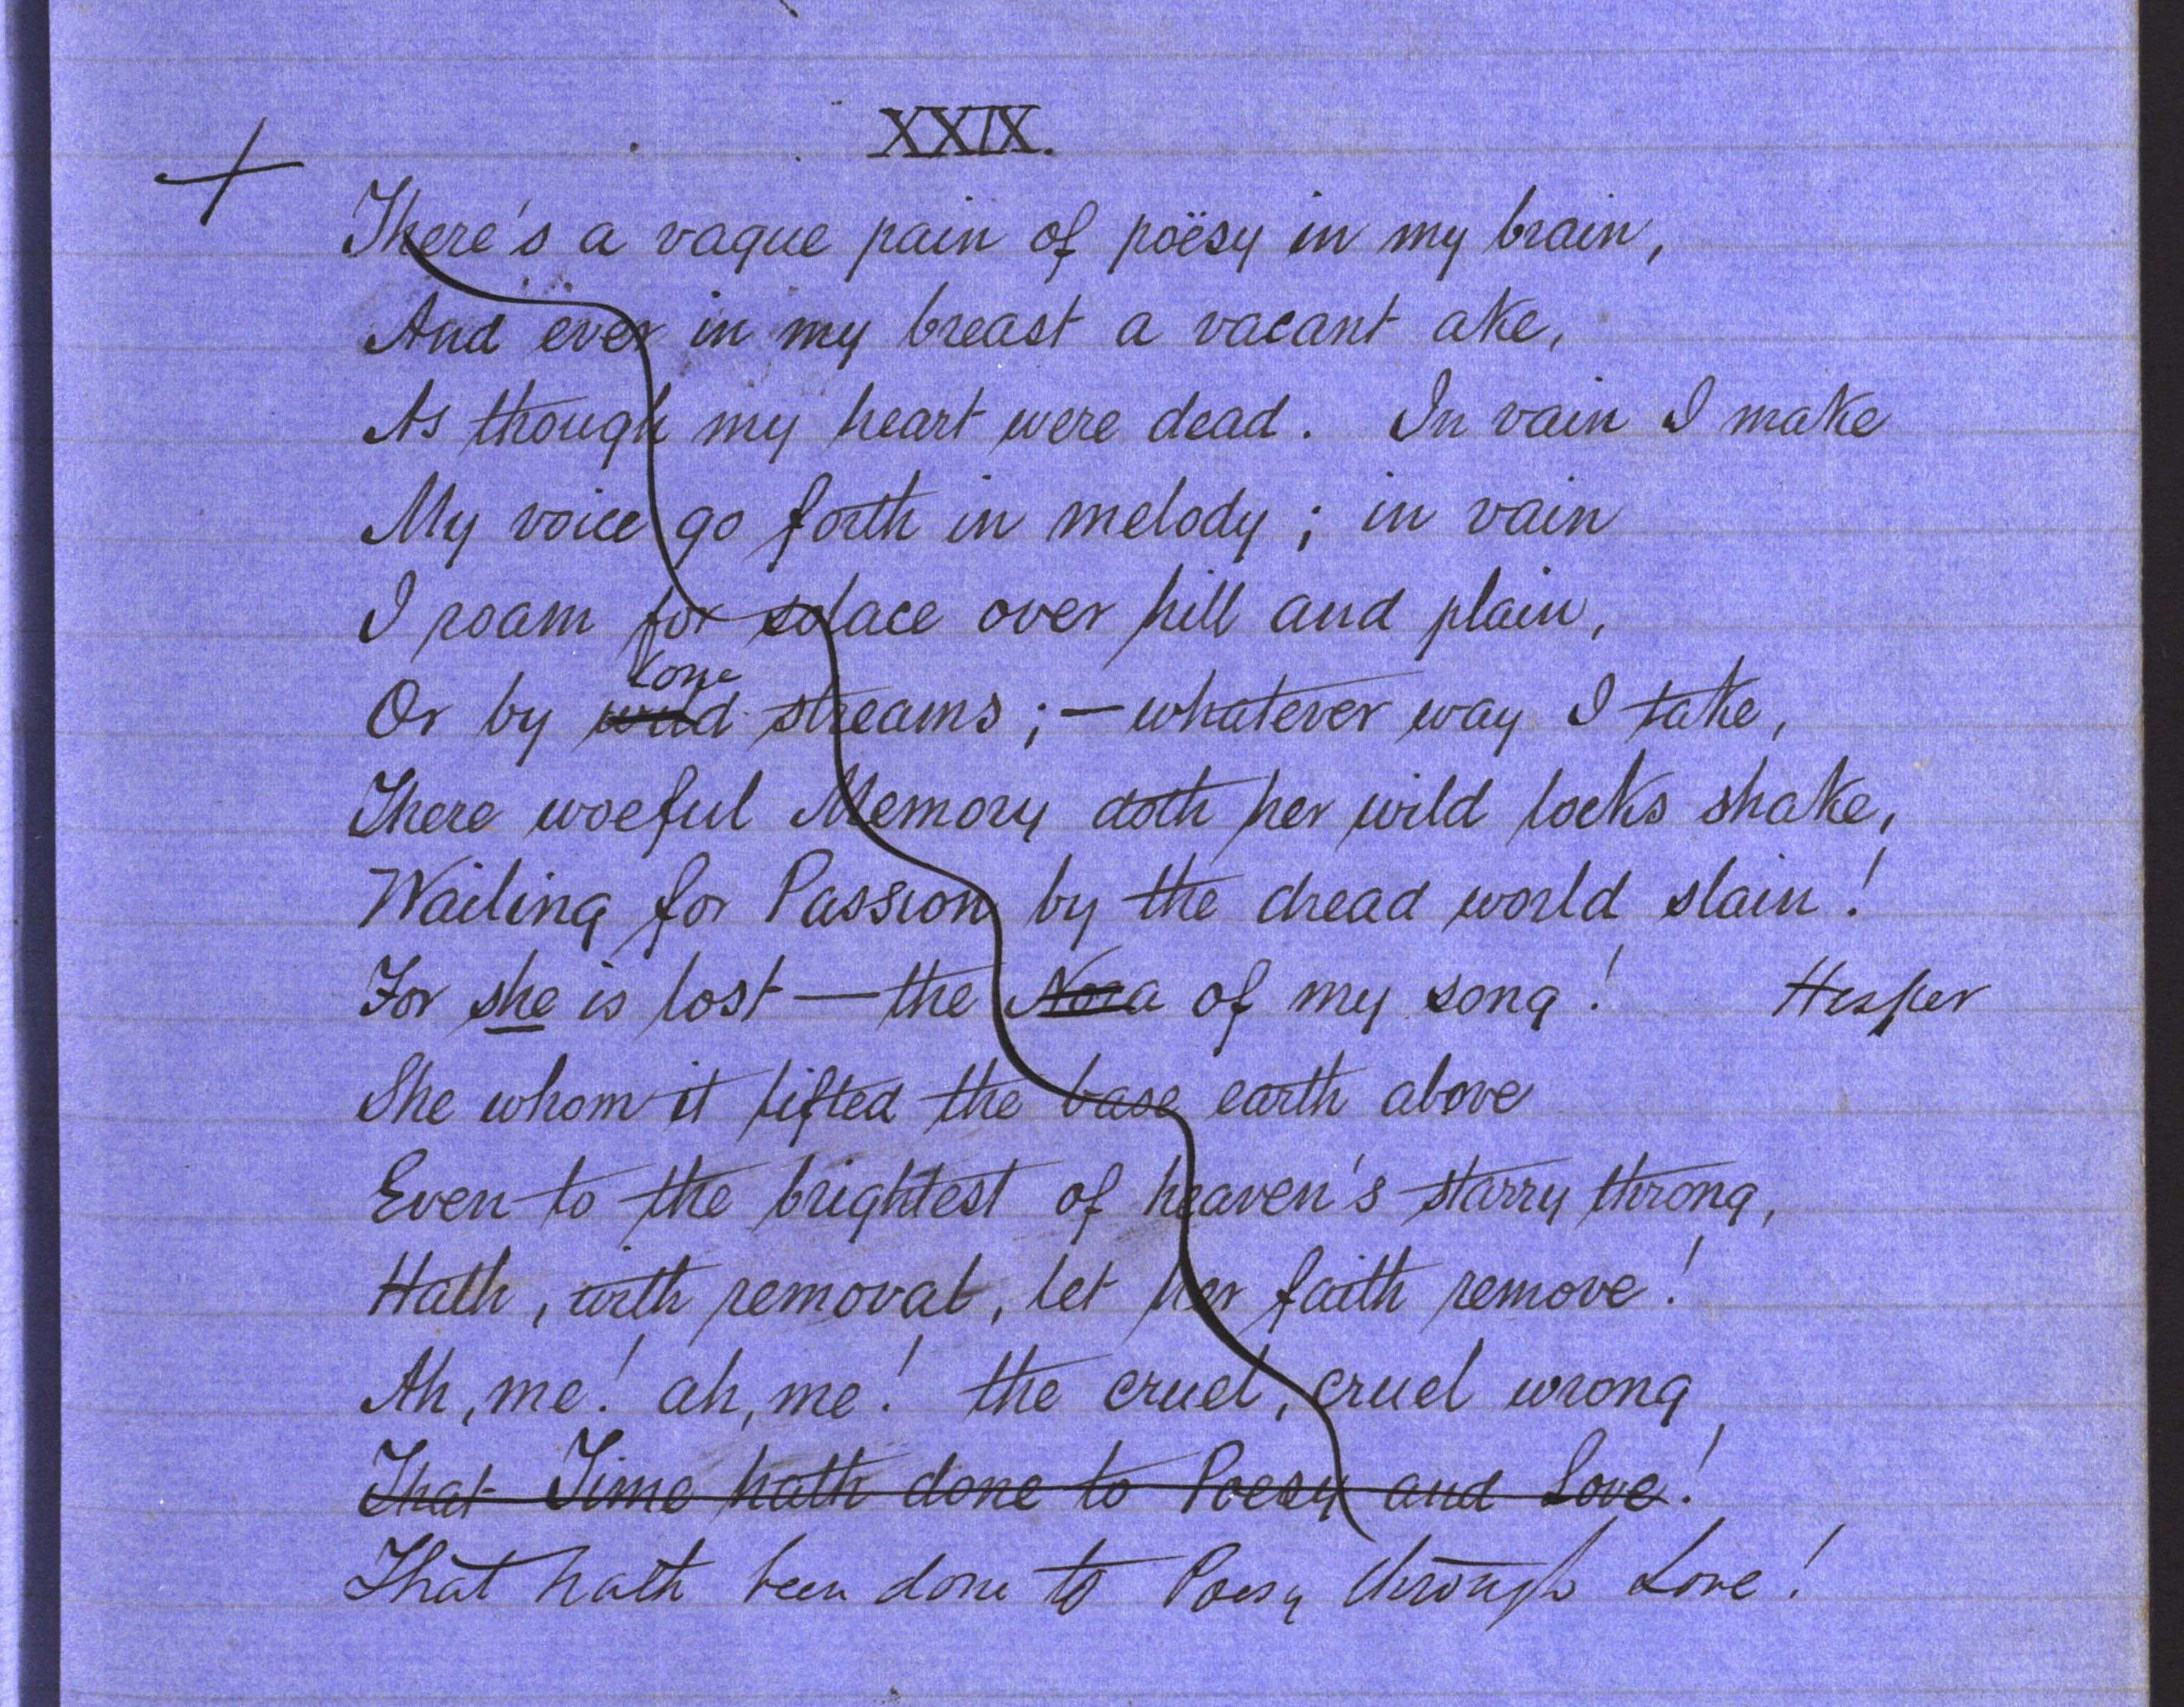 XXIX.
There's a vague pain of poësy in my brain,
And ever in my breast a vacant ake,
As though my heart were dead. In vain I make
My voice go forth in melody; in vain
I roam for solace over hill and plain,
lone
Or by wild streams;—whatever way I take,
There woeful Memory doth her wild locks shake,
Wailing for Passion by the dread world slain!
For she is lost—the Nora of my song! Hesper
She whom it lifted the base earth above
Even to the brightest of heaven's starry throng,
Hath, with removal, let her faith remove!
Ah, me! ah, me! the cruel, cruel wrong
That Time hath done to Poesy and Love!
That hath been done to Poesy through Love!